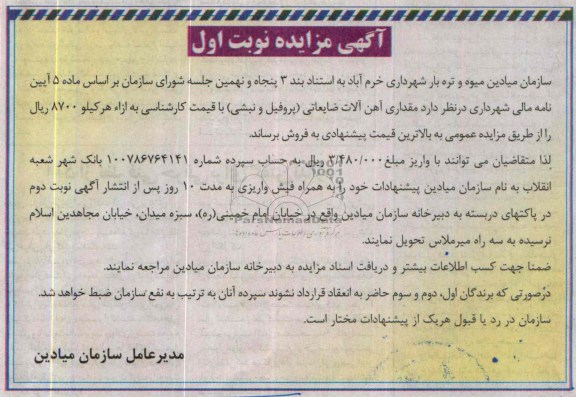 آگهی مزایده نوبت اول
سازمان میادین میوه و تره بار شهرداری خرم آباد به استناد بند ۳ پنجاه و نهمین جلسه شورای سازمان بر اساس ماده ۵ آیین
نامه مالی شهرداری درنظر دارد مقداری آهن آلات ضایعاتی (پروفیل و نبشی) با قیمت کارشناسی به ازاء هرکیلو ۸۷۰۰ ریال
را از طریق مزایده عمومی به بالاترین قیمت پیشنهادی به فروش برساند.
لذا متقاضیان می توانند با واریز مبلغ ۳/۴۸۰/۰۰۰ ریال به حساب سپرده شماره ۱۰۰۷۸۶۷۶۴۱۴۱ بانک شهر شعبه
انقلاب به نام سازمان میادین پیشنهادات خود را به همراه فیش واریزی به مدت ۱۰ روز پس از انتشار آگهی نوبت دوم
در پاکتهای دربسته به دبیرخانه سازمان میادین واقع در خیابان امام خمینی(ره)، سبزه میدان، خیابان مجاهدین اسلام
نرسیده به سه راه میرملاس تحویل نمایند.
ضمنا جهت کسب اطلاعات بیشتر و دریافت اسناد مزایده به دبیرخانه سازمان میادین مراجعه نمایند.
درصورتی که برندگان اول، دوم و سوم حاضر به انعقاد قرارداد نشوند سپرده آنان به ترتیب به نفع سازمان ضبط خواهد شد.
سازمان در رد یا قبول هریک از پیشنهادات مختار است.
مدیرعامل سازمان میادین